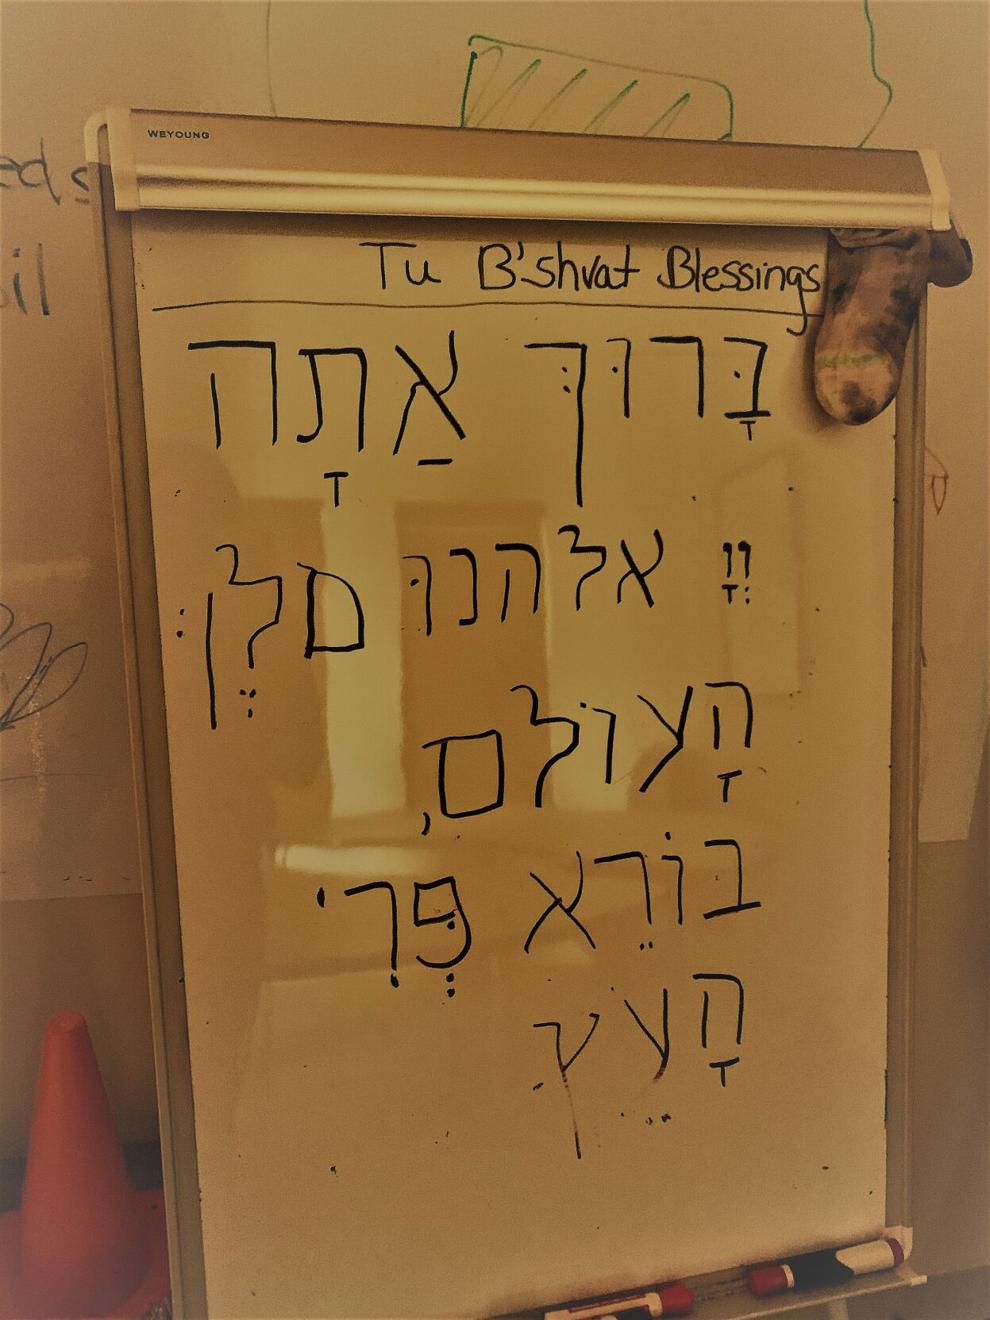 WEYOUNG
eds
oil
Tu B'shvat Blessings
בָּרוּךְ אַתָה
יְיָ אלהנוּ מלֶךְ
הָעוֹלם,
בּוֹרֵא פֶּרִי
הָעֵץ.